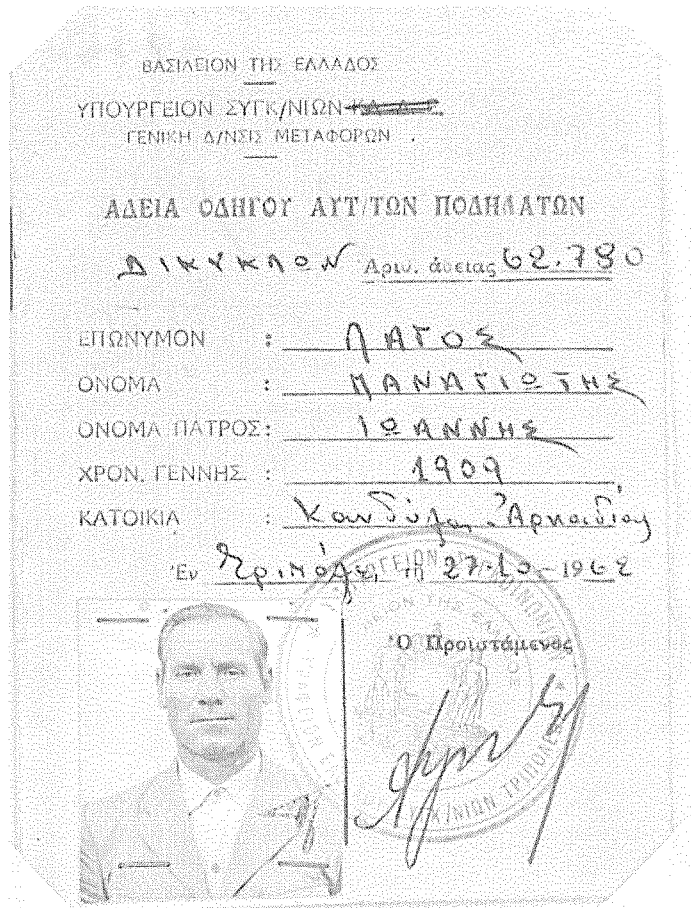 ΒΑΣΙΛΕΙΟΝ ΤΗΣ ΕΛΛΑΔΟΣ
ΥΠΟΥΡΓΕΙΟΝ ΣΥΓΚ/ΝΙΩΝ
ΓΕΝΙΚΗ Δ/ΝΣΙΣ ΜΕΤΑΦΟΡΩΝ .
ΑΔΕΙΑ ΟΔΗΓΟΥ ΑΥΤ/ΤΩΝ ΠΟΔΗΛΑΤΩΝ
ΔΙΚΥΚΛΩΝ Αριυ. άδειας 62.780
ΕΠΩΝΥΜΟΝ : ΛΑΓΟΣ
ΟΝΟΜΑ : ΠΑΝΑΓΙΩΤΗΣ
ΟΝΟΜΑ ΠΑΤΡΟΣ: ΙΩΑΝΝΗΣ
ΧΡΟΝ. ΓΕΝΝΗΣ. : 1909
ΚΑΤΟΙΚΙΑ : Κανδύλα Ἀρκαδίας
Ἐν Τριπόλει τῇ 27-10-1962
Ὁ Προϊστάμενος
ΣΥΓΚ/ΝΙΩΝ ΤΡΙΠΟΛΕΩΣ